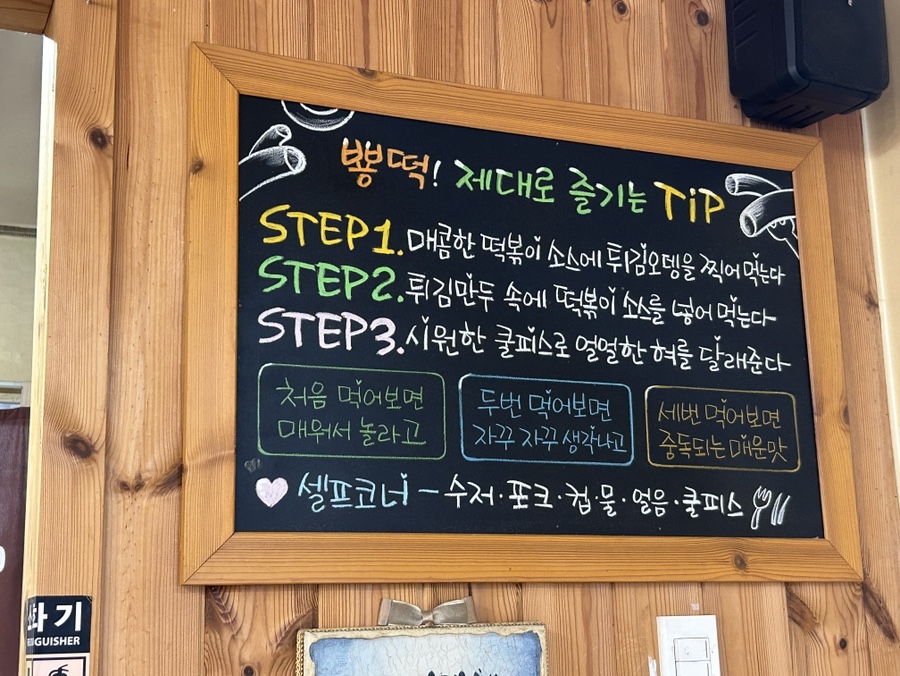 뿅떡! 제대로 즐기는 TiP
STEP1. 매콤한 떡볶이 소스에 튀김오뎅을 찍어 먹는다
STEP2. 튀김만두 속에 떡볶이 소스를 넣어 먹는다
STEP3. 시원한 쿨피스로 얼얼한 혀를 달래준다
처음 먹어보면
매워서 놀라고
두번 먹어보면
자꾸 자꾸 생각나고
세번 먹어보면
중독되는 매운맛
셀프코너 - 수저·포크·컵·물·얼음·쿨피스
화기
GUISHER